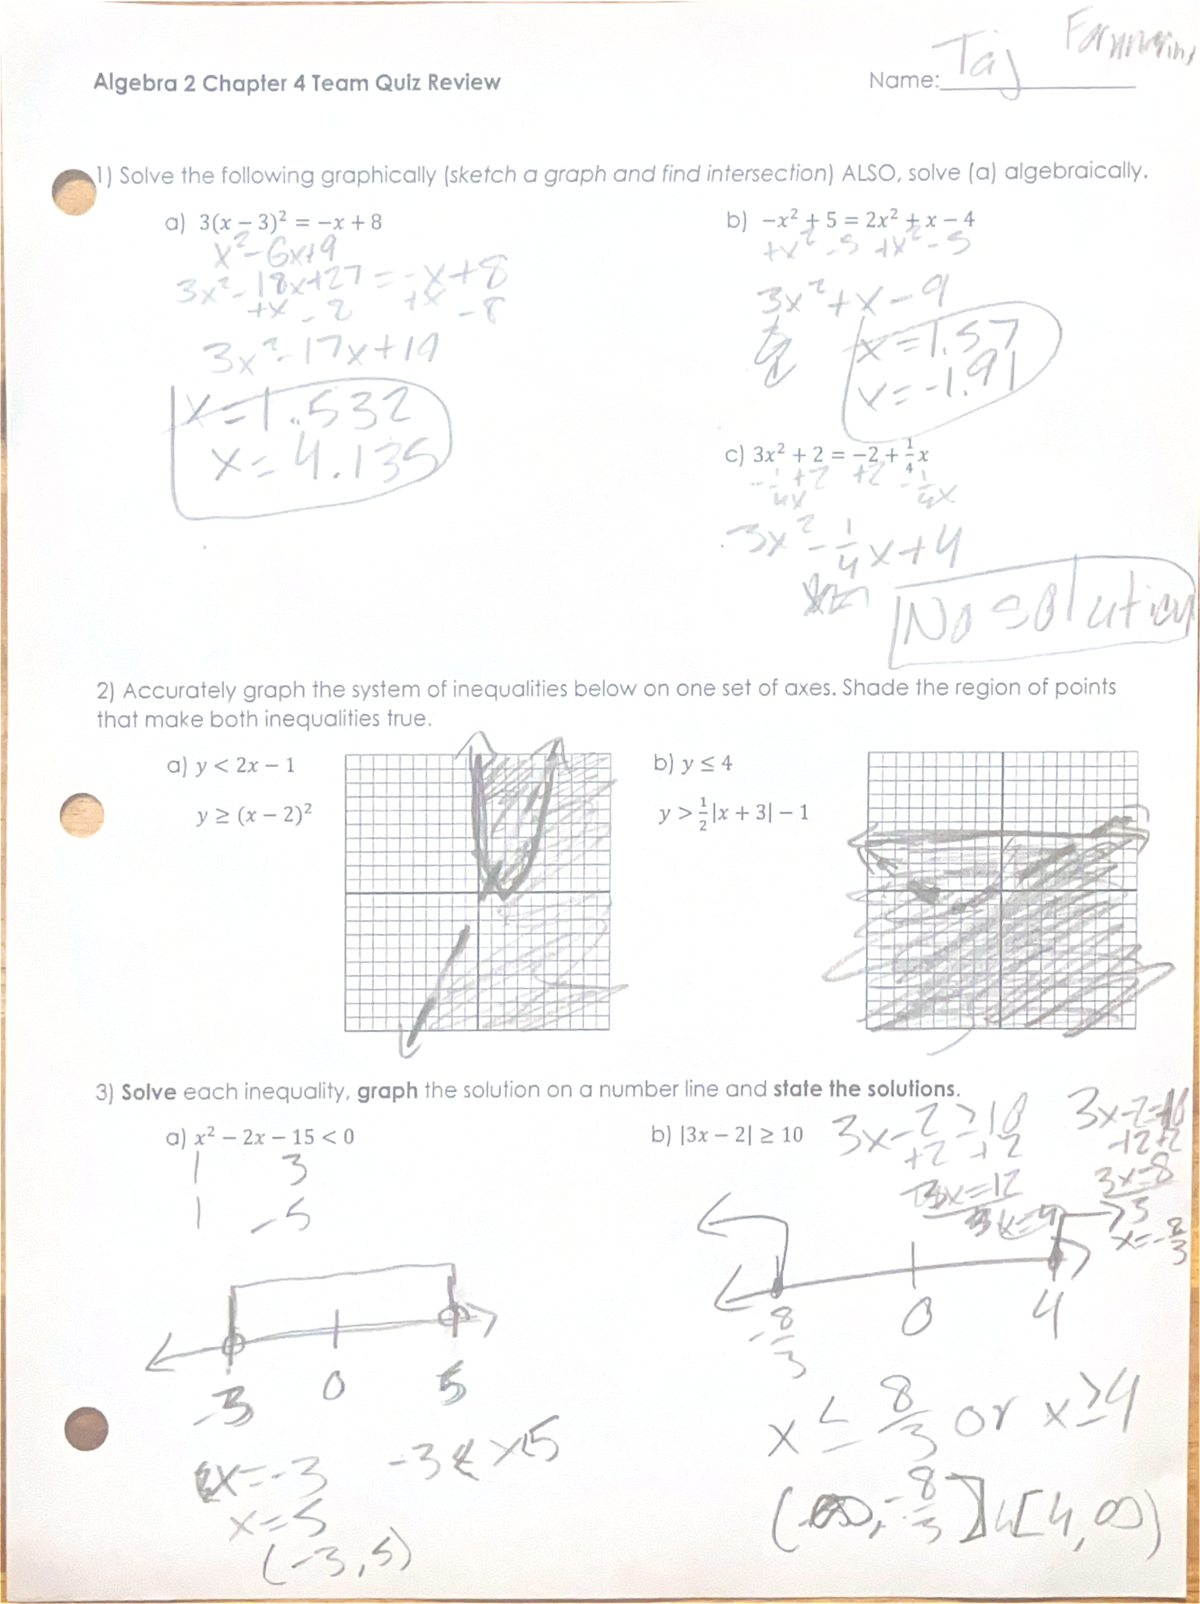 Algebra 2 Chapter 4 Team Quiz Review
Name: Taj
1) Solve the following graphically (sketch a graph and find intersection) ALSO, solve (a) algebraically.
a) 3(x − 3)² = −x + 8
x² − 6x+9
3x² − 18x+27 = −x+8
+x − 2 +x − 8
3x² − 17x+19
x=1.532
x=4.135
b) −x² + 5 = 2x² + x − 4
+x² −5 +x² −5
3x²+x−9
x=1.57
x=−1.91
c) 3x² + 2 = −2 + 1/4 x
−1/4x +2 +2 −1/4x
3x² − 1/4 x+4
No solution
2) Accurately graph the system of inequalities below on one set of axes. Shade the region of points
that make both inequalities true.
a) y < 2x − 1
y ≥ (x − 2)²
b) y ≤ 4
y > 1/2 |x + 3| − 1
3) Solve each inequality, graph the solution on a number line and state the solutions.
a) x² − 2x − 15 < 0
1 3
1 −5
−3 0 5
x=−3 −3< x<5
x=5
(−3,5)
b) |3x − 2| ≥ 10
3x−2≥10
+2 +2
3x=12
3x−2=10
+2+2
3x−8
3
x=−8/3
−8/3 0 4
x ≤ 8/3 or x≥4
(−∞, −8/3] U [4,∞)